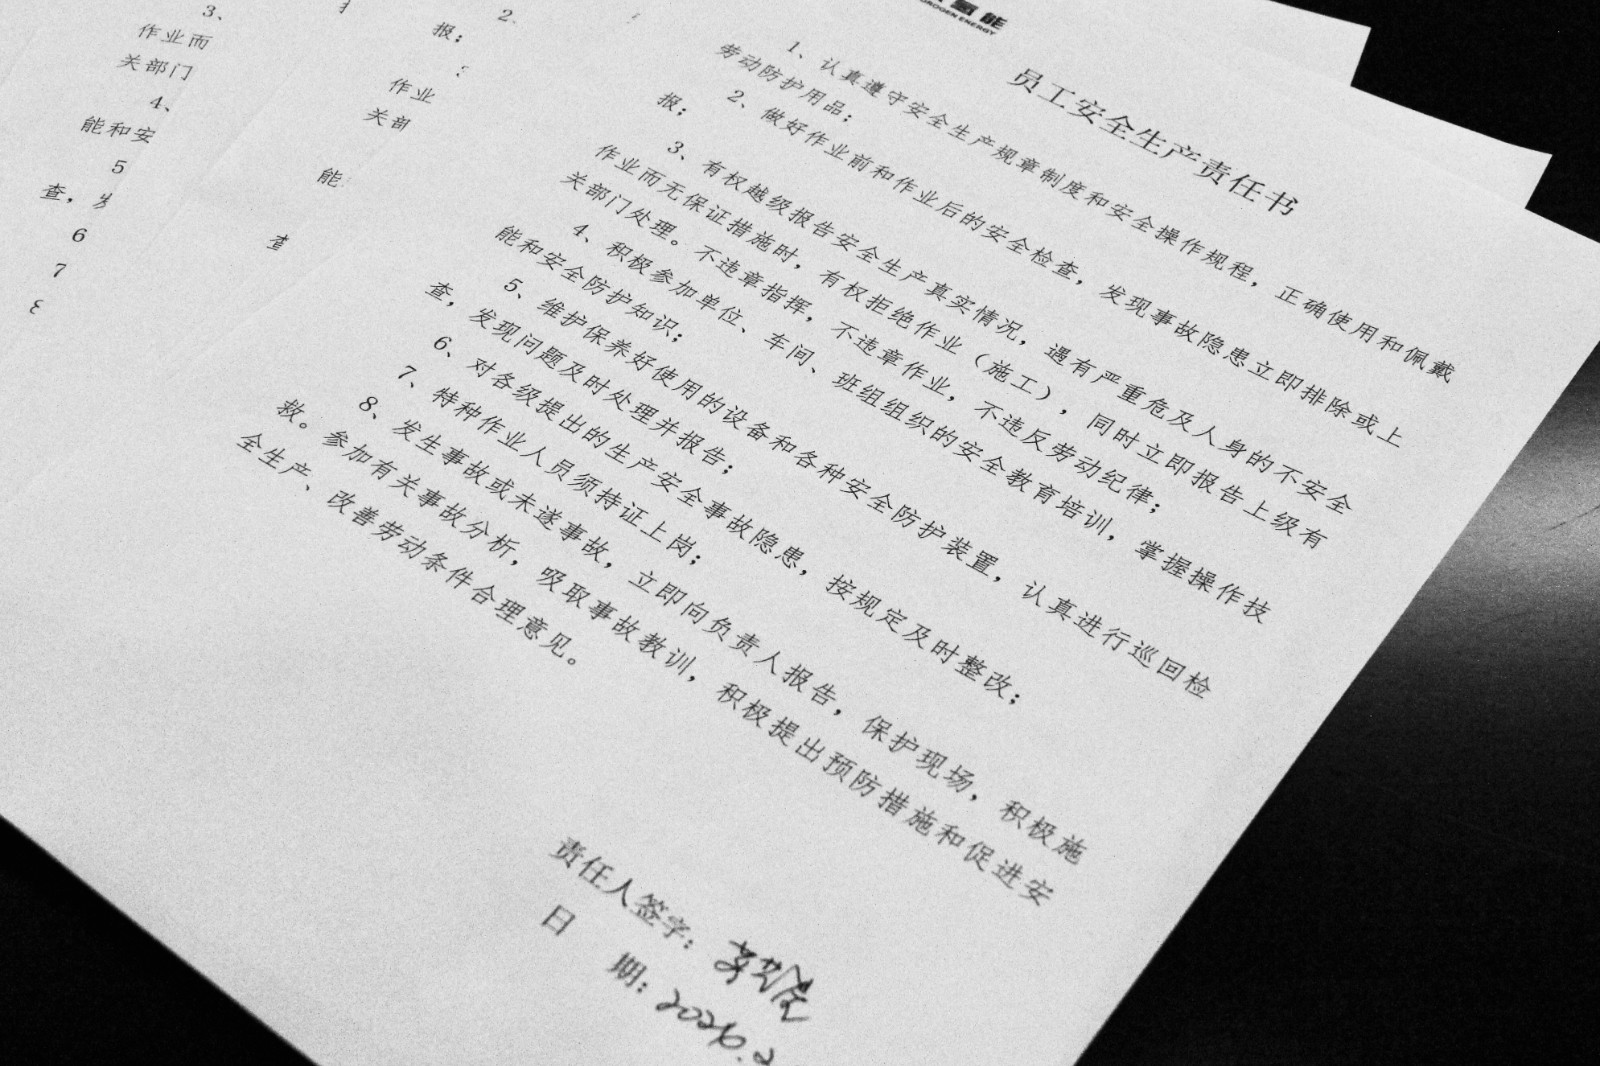 氢能
HYDROGEN ENERGY
员工安全生产责任书
1、认真遵守安全生产规章制度和安全操作规程，正确使用和佩戴
劳动防护用品；
2、做好作业前和作业后的安全检查，发现事故隐患立即排除或上
报；
3、有权越级报告安全生产真实情况，遇有严重危及人身的不安全
作业而无保证措施时，有权拒绝作业（施工），同时立即报告上级有
关部门处理。不违章指挥，不违章作业，不违反劳动纪律；
4、积极参加单位、车间、班组组织的安全教育培训，掌握操作技
能和安全防护知识；
5、维护保养好使用的设备和各种安全防护装置，认真进行巡回检
查，发现问题及时处理并报告；
6、对各级提出的生产安全事故隐患，按规定及时整改；
7、特种作业人员须持证上岗；
8、发生事故或未遂事故，立即向负责人报告，保护现场，积极施
救。参加有关事故分析，吸取事故教训，积极提出预防措施和促进安
全生产、改善劳动条件合理意见。
责任人签字：
日 期：2026.2
2、
报；
作业
关部
能
查
3、
作业而
关部门
4、
能和安
5
查，发
6
7